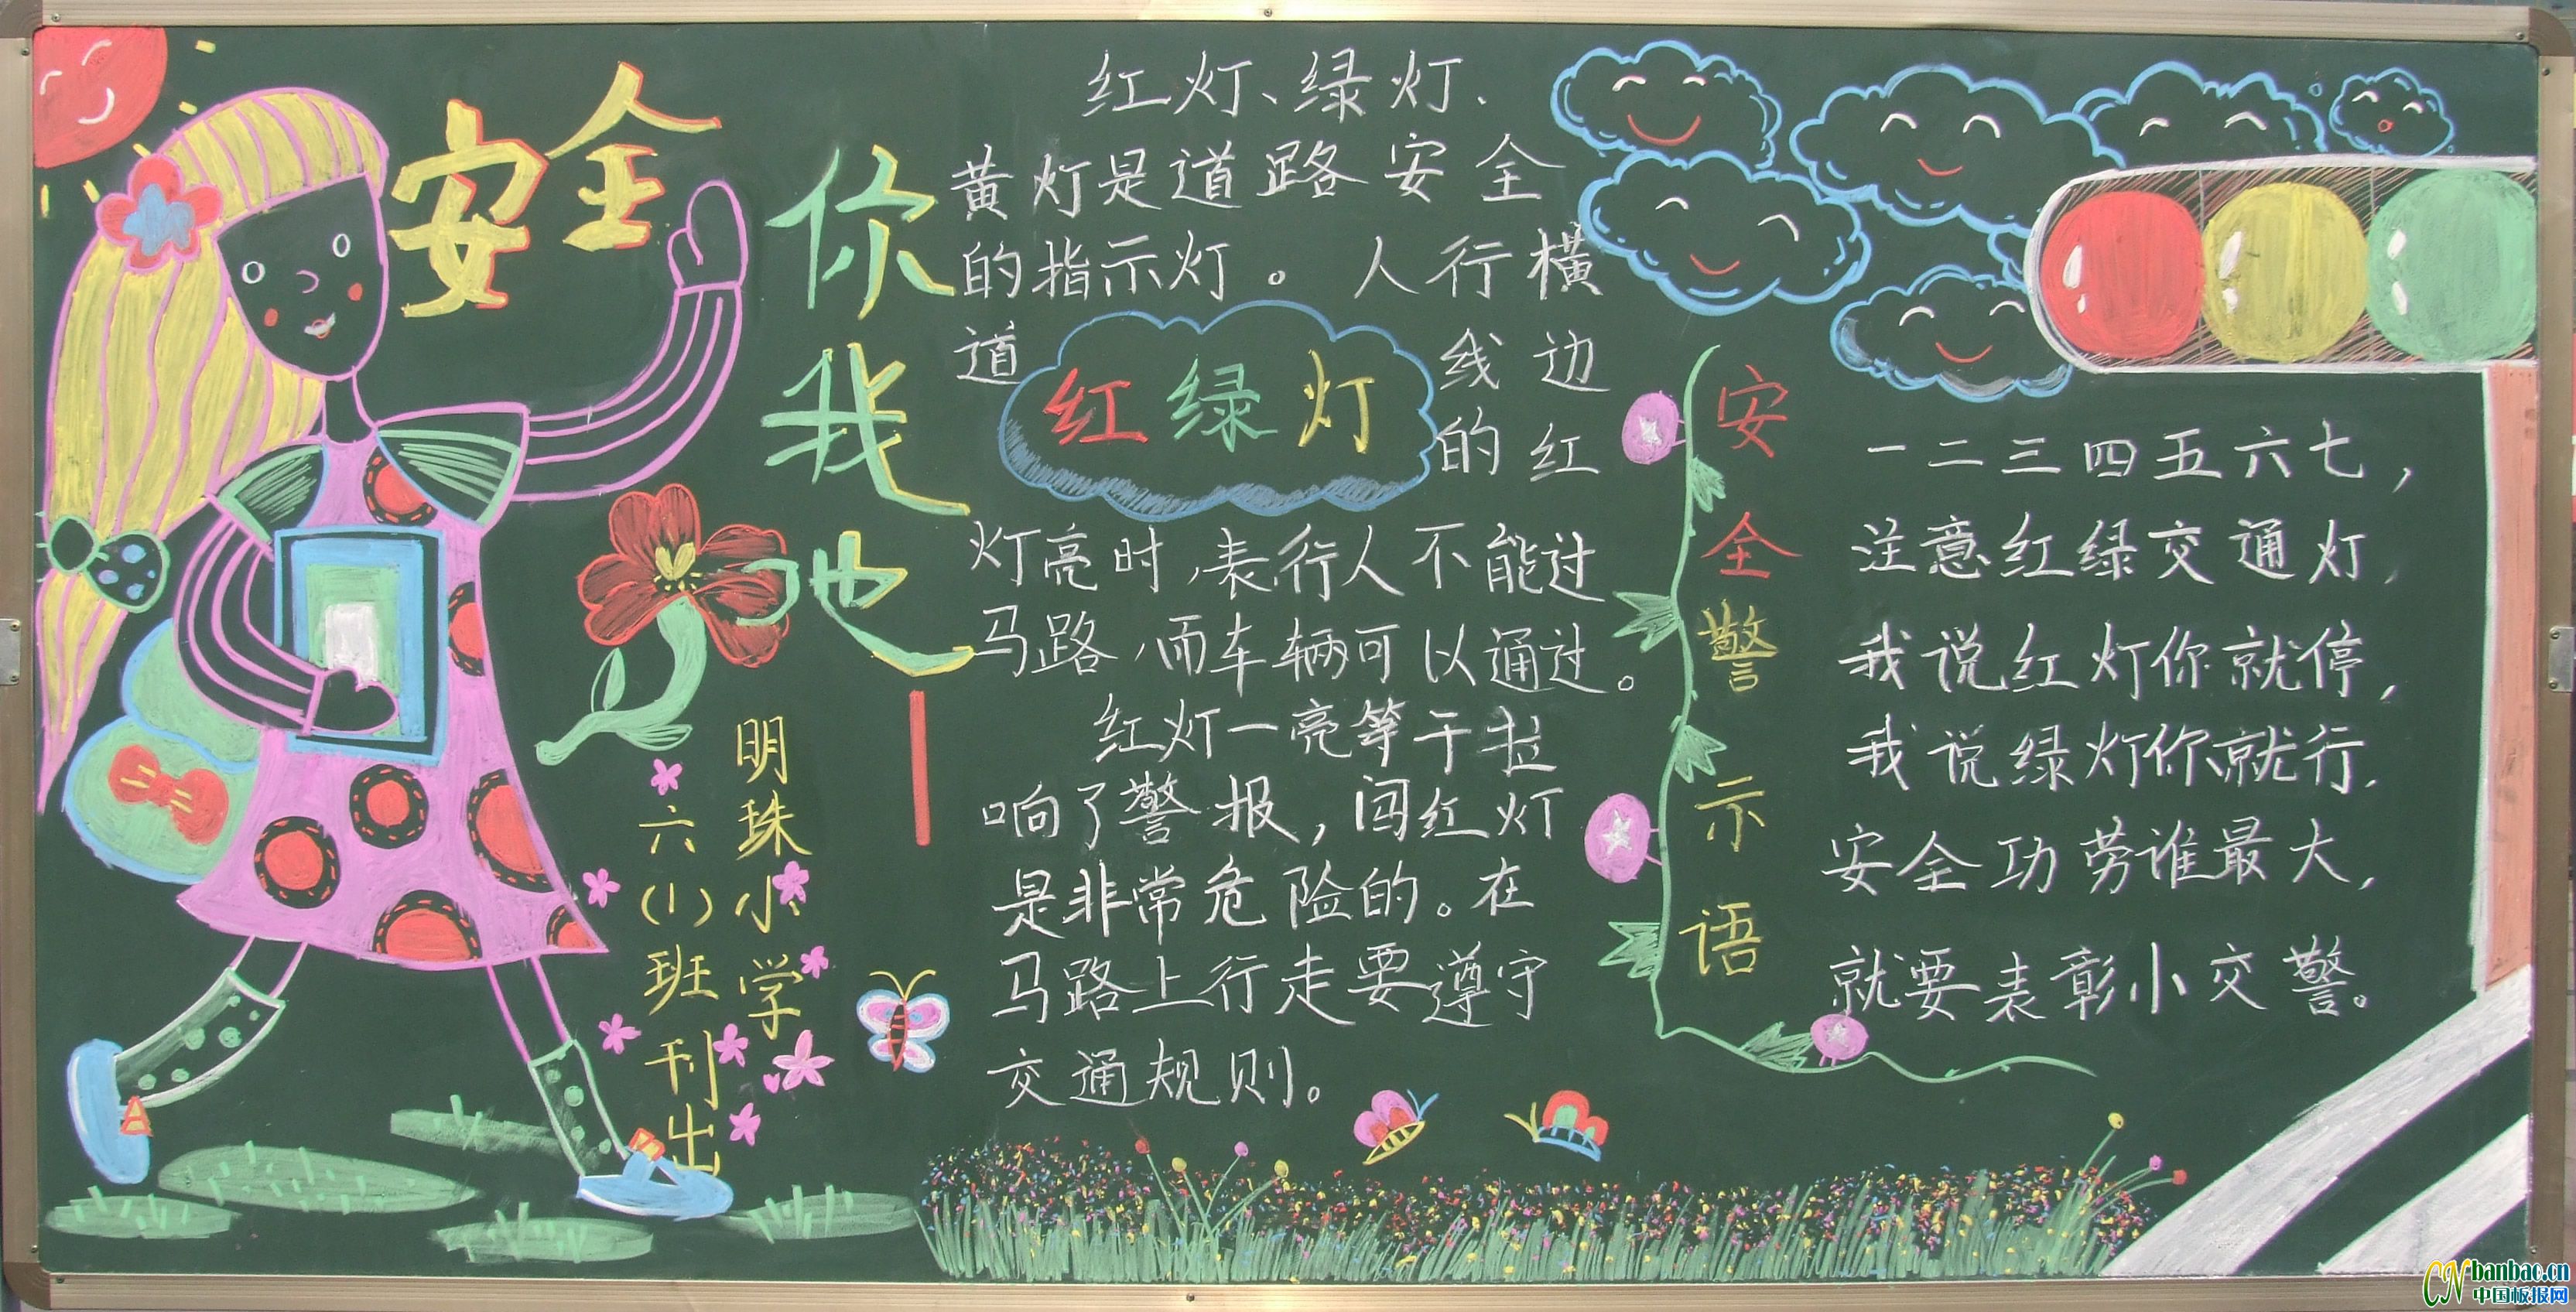 安全
你我他
明珠小学
六(1)班刊出
红灯、绿灯、
黄灯是道路安全
的指示灯。人行横
道 线边
红绿灯
的红
灯亮时,表行人不能过
马路,而车辆可以通过。
红灯一亮等于拉
响了警报,闯红灯
是非常危险的。在
马路上行走要遵守
交通规则。
安全警示语
一二三四五六七,
注意红绿交通灯,
我说红灯你就停,
我说绿灯你就行.
安全功劳谁最大,
就要表彰小交警。
CN banbao.cn
中国板报网